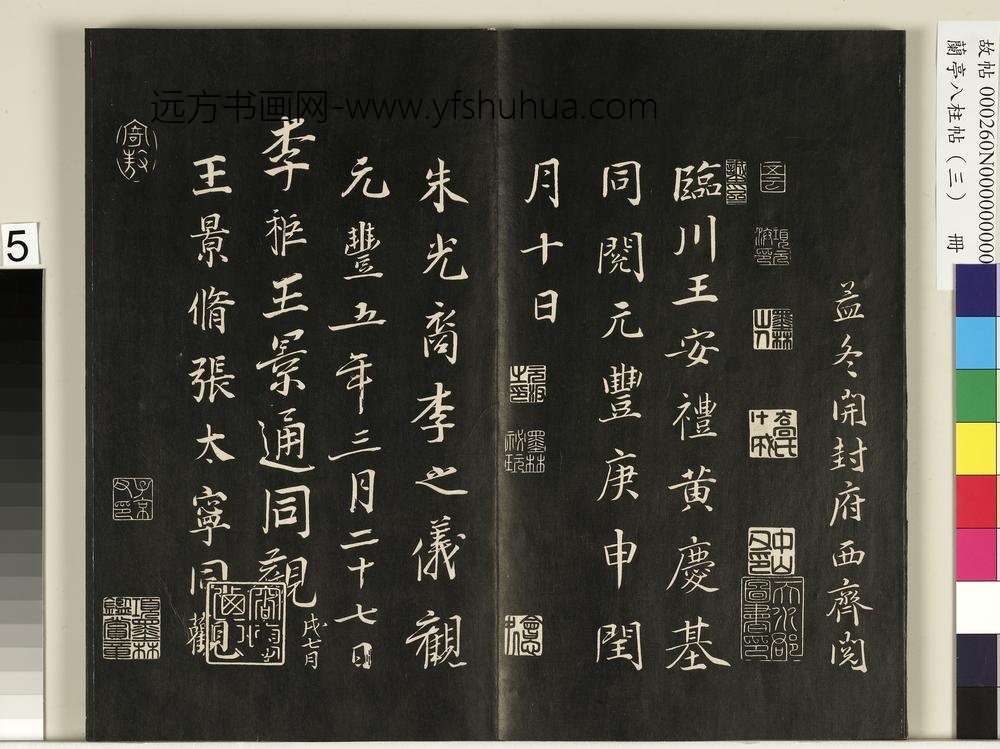 故帖 000260N000000000
蘭亭八柱帖(三) 冊
远方书画网-www.yfshuhua.com
益冬開封府西齊閲
臨川王安禮黄慶基
同閲元豐庚申閏
月十日
朱光裔李之儀觀
元豐五年三月二十七日
李秬王景通同觀
戌七月
王景脩張太寧同觀
墨林山人
項墨林鑑賞章
子京父印
5